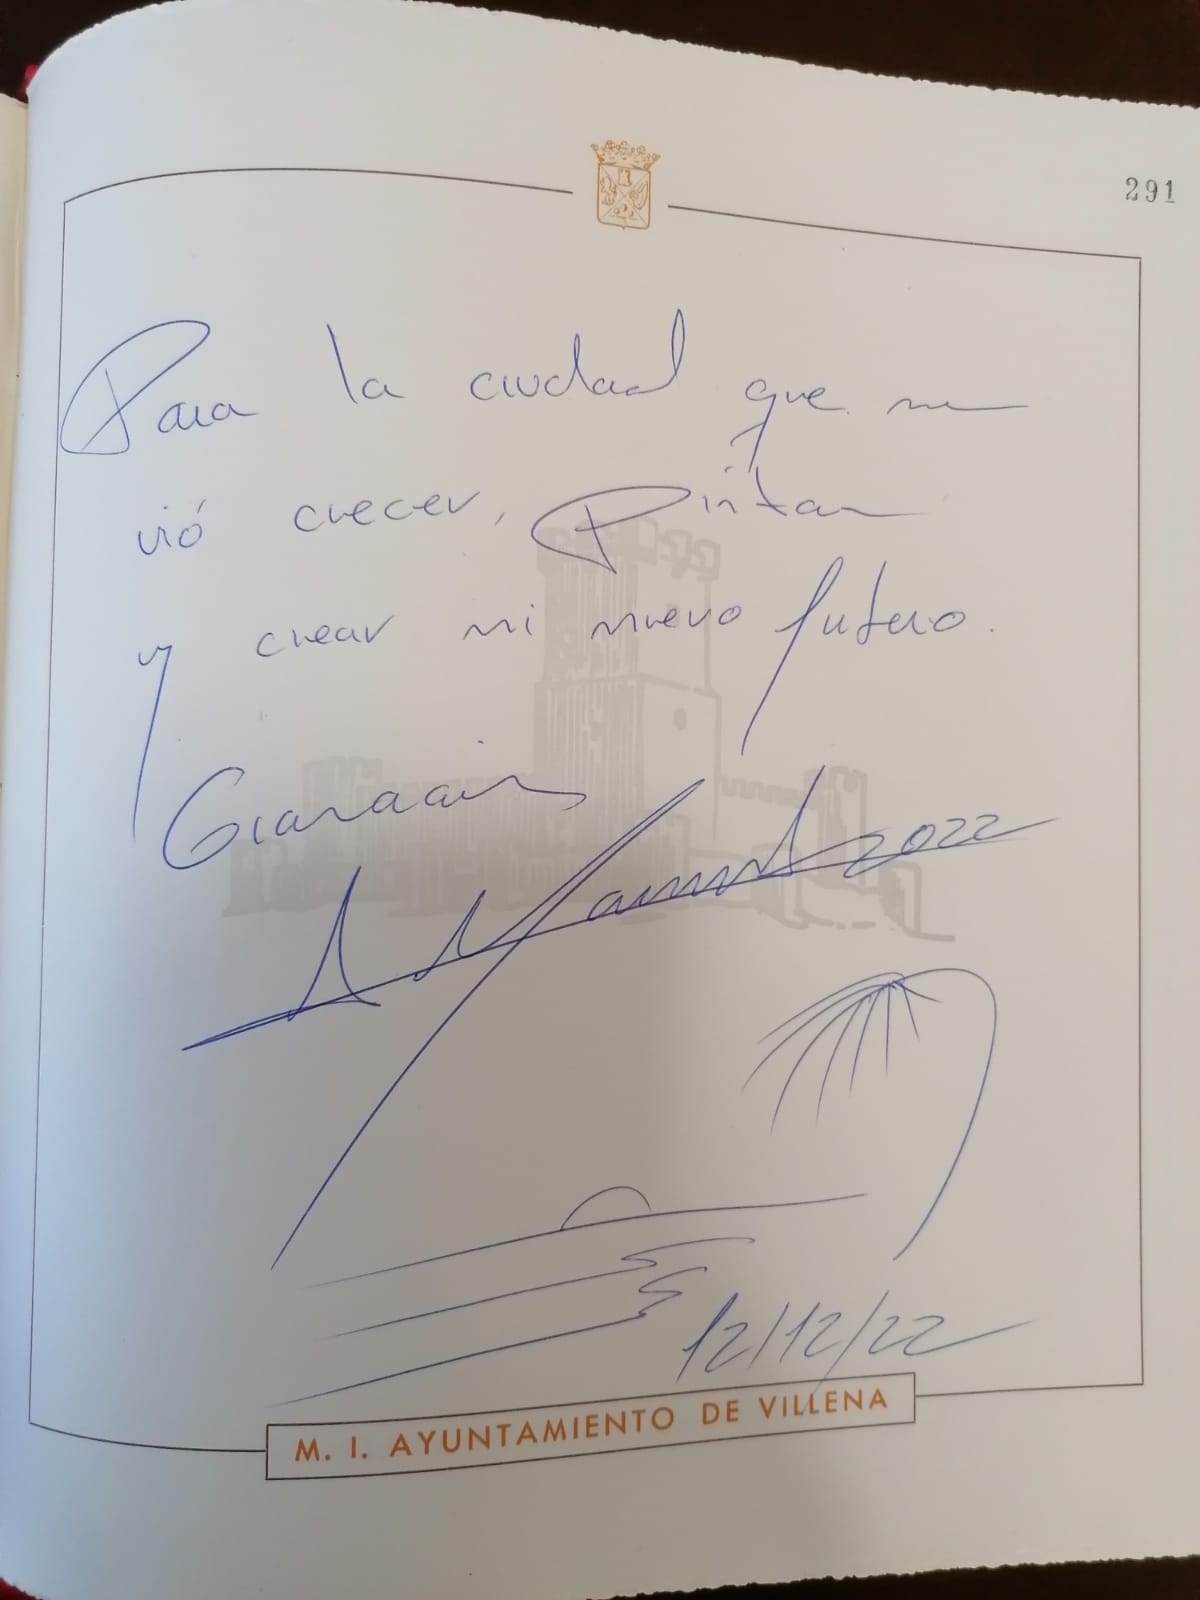 291
Para la ciudad que me
vió crecer, pintar
y crear mi nuevo futuro.
Gracias
2022
12/12/22
M. I. AYUNTAMIENTO DE VILLENA